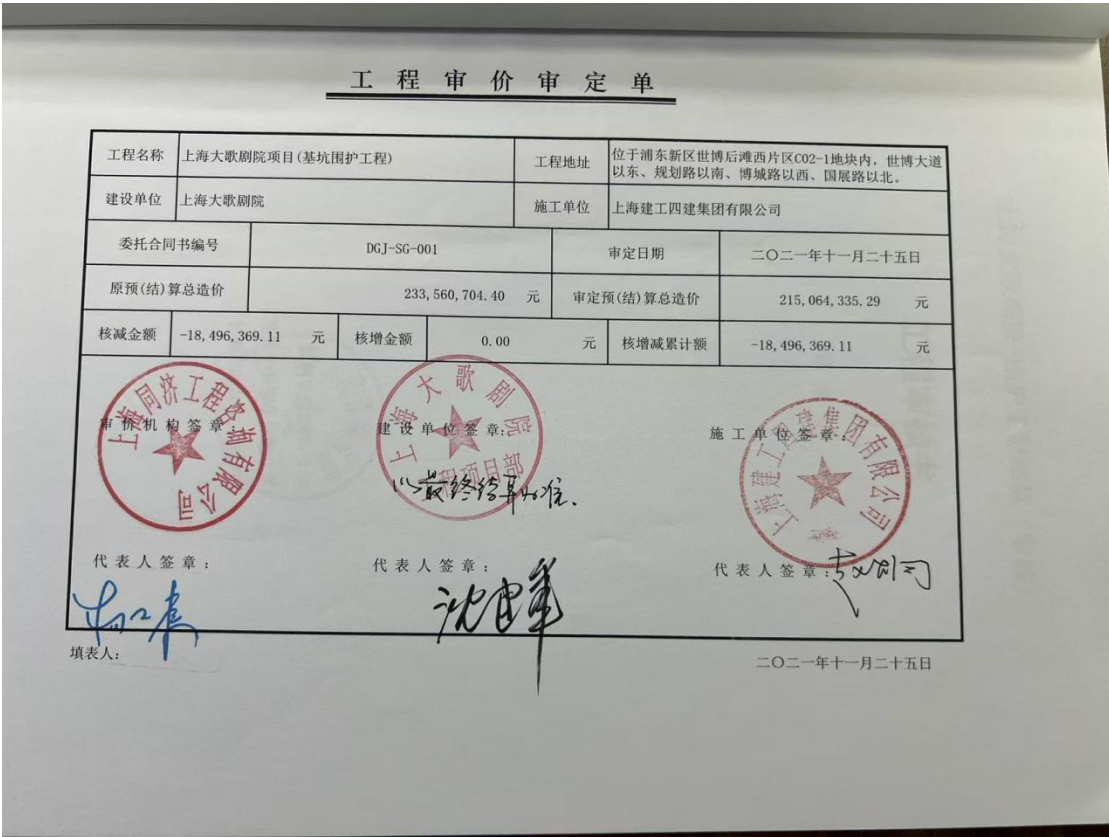 工程审价审定单
工程名称 上海大歌剧院项目(基坑围护工程) 工程地址 位于浦东新区世博后滩西片区C02-1地块内，世博大道
以东、规划路以南、博城路以西、国展路以北。
建设单位 上海大歌剧院 施工单位 上海建工四建集团有限公司
委托合同书编号 DGJ-SG-001 审定日期 二〇二一年十一月二十五日
原预(结)算总造价 233,560,704.40 元 审定预(结)算总造价 215,064,335.29 元
核减金额 -18,496,369.11 元 核增金额 0.00 元 核增减累计额 -18,496,369.11 元
上海同济工程咨询有限公司
上海大歌剧院
工程项目部
上海建工四建集团有限公司
审价机构签章: 建设单位签章: 施工单位签章:
以最终结算为准.
代表人签章: 代表人签章: 代表人签章:
填表人:
二〇二一年十一月二十五日